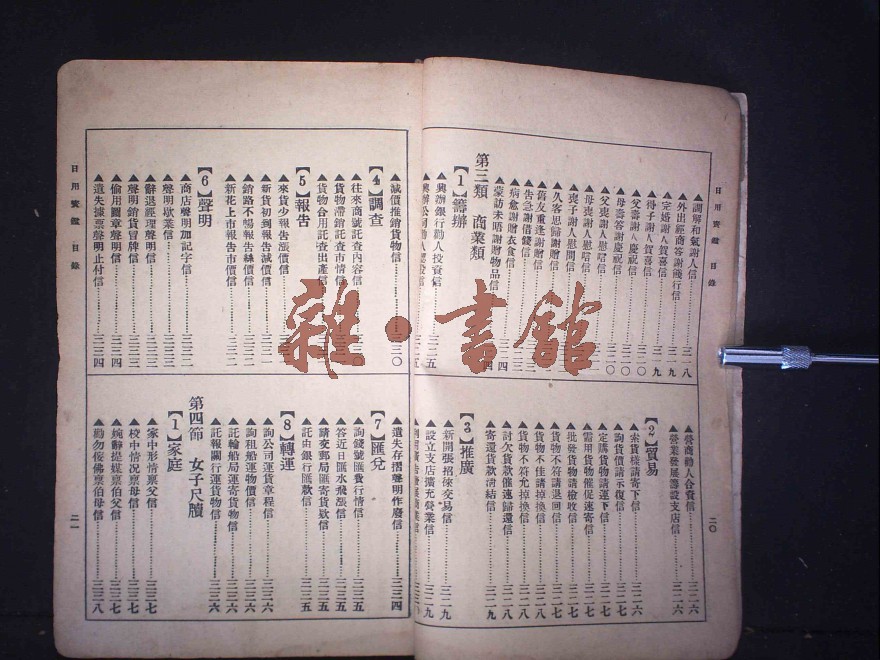 日用寶鑑 目錄
二〇
▲調解和氣謝人信……三一八
▲外出經商答謝餞行信……三一九
▲完婚謝人賀喜信……三一九
▲得子謝人賀喜信……三一九
▲父壽謝人慶祝信……三二〇
▲母壽答謝慶祝信……三二〇
▲父喪謝人慰唁信……三二〇
▲母喪謝人慰唁信
▲喪子謝人慰問信
▲久客思歸謝贈信
▲舊友重逢謝贈信
▲告急謝借錢信
▲病愈謝贈衣食信
▲蒙訪未晤謝贈物品信
第三類 商業類
【1】籌辦
▲興辦銀行勸人投資信……三二五
▲興辦公司勸人
▲營商勸人合資信……三二六
▲營業發展籌設支店信……三二六
【2】貿易
▲索貨樣請寄下信……三二六
▲詢貨價請示復信……三二七
▲定購貨物請運下信……三二七
▲需用貨物催促速寄信……三二七
▲批發貨物請檢收信……三二七
▲貨物不符請退回信……三二七
▲貨物不佳請掉換信……三二八
▲貨物不符允掉換信……三二八
▲討欠貨款催速歸還信……三二八
▲寄還貨款清結信……三二九
【3】推廣
▲新開張招徠交易信……三二九
▲設立支店擴充營業信……三二九
日用寶鑑 目錄
二一
▲減價推銷貨物信……三三〇
【4】調查
▲往來商號託查內容信
▲貨物滯銷託查市情信
▲貨物合用託查出產信
【5】報告
▲來貨少報告漲價信
▲新貨初到報告減價信
▲銷路不暢報告絲價信
▲新花上市報告市價信……三三二
【6】聲明
▲商店聲明加記字信……三三二
▲聲明歇業信……三三三
▲辭退經理聲明信……三三三
▲聲明銷貨冒牌信……三三三
▲偷用圖章聲明信……三三四
▲遺失據票聲明止付信……三三四
▲遺失存摺聲明作廢信……三三四
【7】匯兌
▲詢錢號匯費行情信……三三五
▲答近日匯水飛漲信……三三五
▲請交郵局匯寄貨欵信……三三五
▲託由銀行匯款信……三三五
【8】轉運
▲詢公司運貨章程信……三三六
▲詢租船運物價信……三三六
▲託輪船局運寄貨物信……三三六
▲託報關行運貨物信……三三六
第四節 女子尺牘
【1】家庭
▲家中形情稟父信……三三七
▲校中情况稟母信……三三七
▲婉辭提媒稟伯父信……三三七
▲勸勿佞佛稟伯母信……三三八
雜·書館